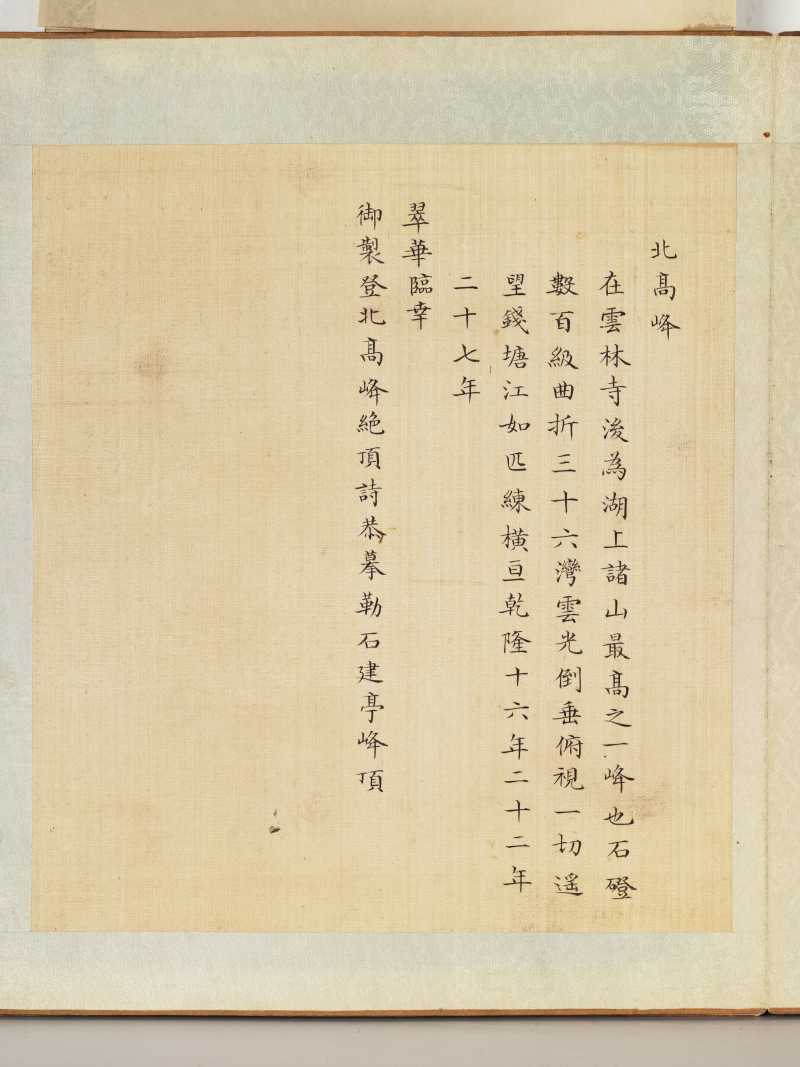 北高峰
在雲林寺後為湖上諸山最高之一峰也石磴
數百級曲折三十六灣雲光倒垂俯視一切遥
望錢塘江如匹練橫亘乾隆十六年二十二年
二十七年
翠華臨幸
御製登北高峰絶頂詩恭摹勒石建亭峰頂